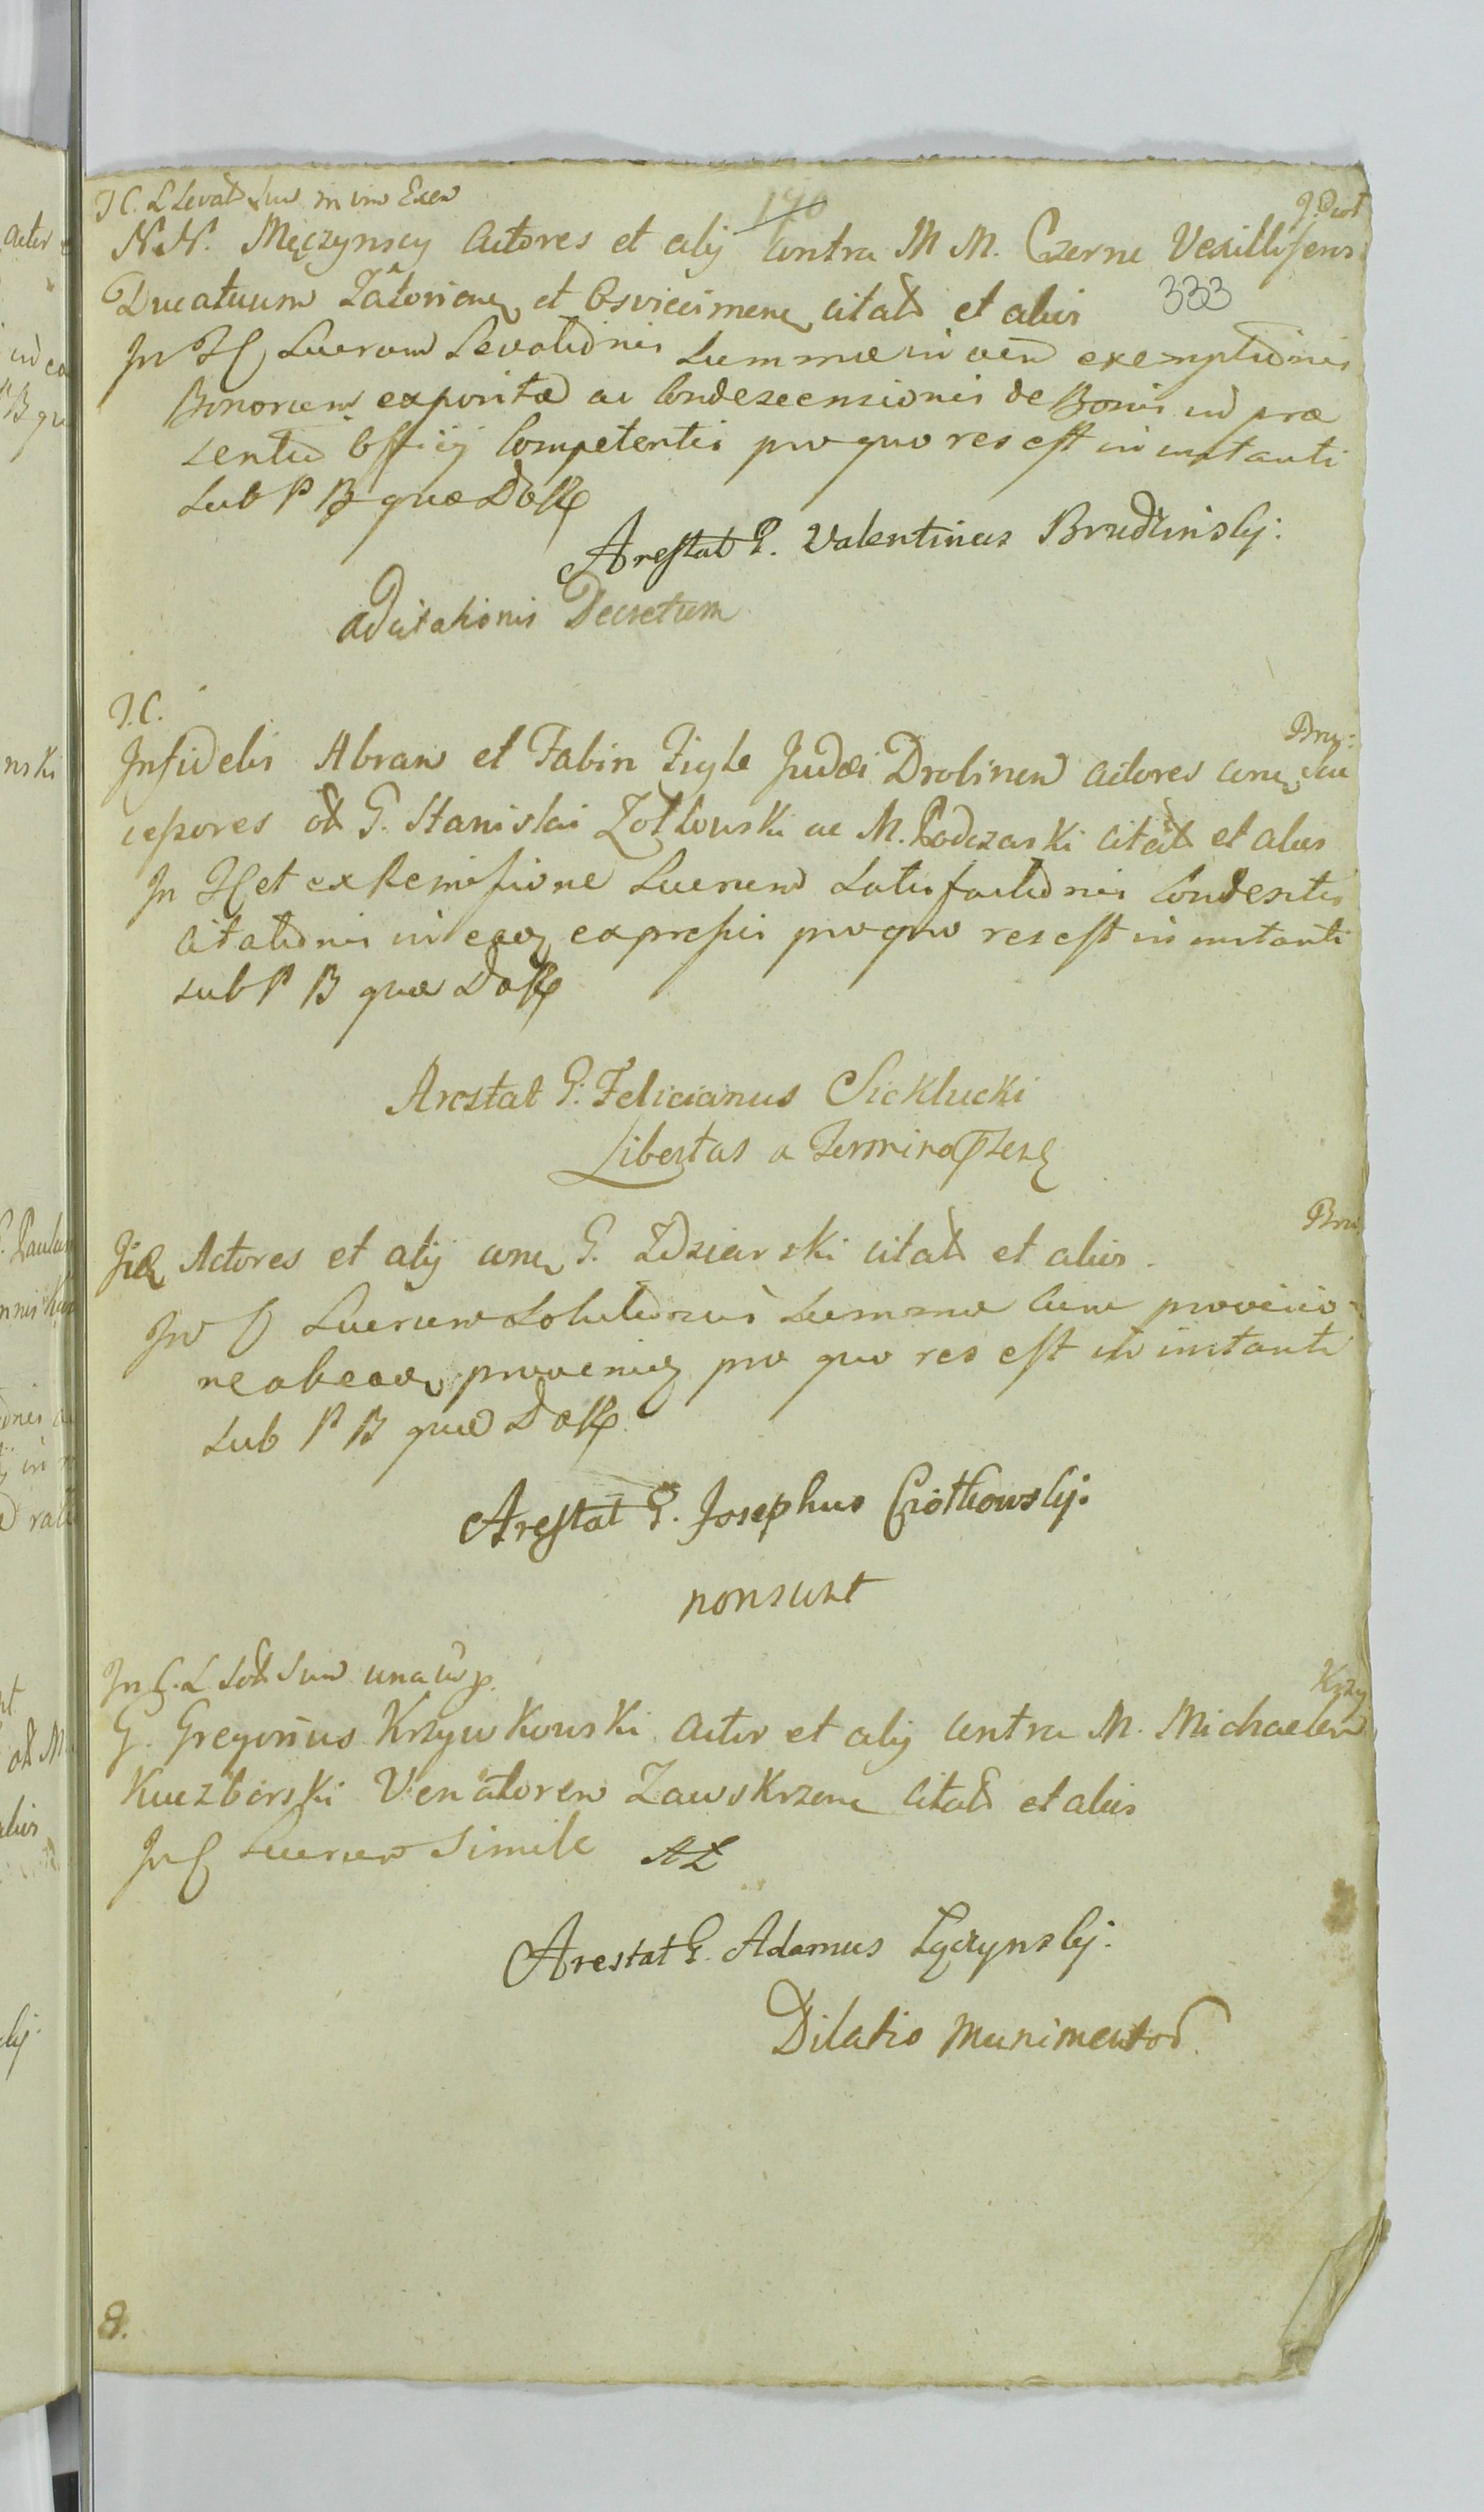 J C. L Levat Sum in vim Exen
190
J. Dist
N. N. Męczynscy Actores et alij Contra M M. Czerne Vexilliferos
Ducatuum Zatorien et Osviecimen citat et alios
333
In Lucrum Levationis Summæ in vim exemptionis
Bonorum expositæ ac Condescensionis de Bonis ad præ
sentiã Officij Competentis pro quo res est in instanti
Sub P B quæ
Arestat G. Valentinus Brudzinskj:
Adcitationis Decretum
J. C.
Bru:
Infidelis Abram et Fabin Judæi Drobinen Actores cum Suc
cessores G. Stanislai Zołtowski ac M. Podczaski citat et alios
In et ex Remissione Lucrum Satisfactionis Condescens
Citationis in eaq expressis pro quo res est in instanti
sub P B quæ
Arestat G: Felicianus Sieklucki
Libertas a Termino
Bru
Actores et alij cum G. Zdziarski citat et alios.
In Lucrum Solutionis Summæ cum provisio
ne ab eaq proveniq pro quo res est in instanti
Sub P B quæ
Arestat G. Josephus Ciółkowskj:
non sunt
In C. L Sol Sum una cũ p.
Krzy
G. Gregorius Krzywkowski Actor et alij Contra M. Michaelem
Kuczborski Venatorem Zawskrzene Citat et alios
In Lucrum Simile AZ
Arestat G. Adamus Łączynskj:
Dilatio Munimentor.
8.